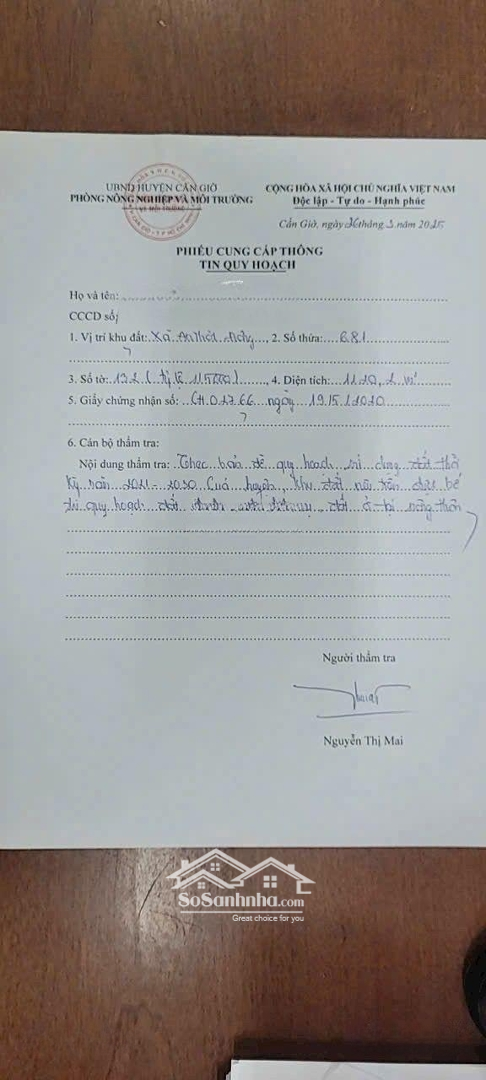 UBND HUYỆN CẦN GIỜ
PHÒNG NÔNG NGHIỆP VÀ MÔI TRƯỜNG
CỘNG HÒA XÃ HỘI CHỦ NGHĨA VIỆT NAM
Độc lập - Tự do - Hạnh phúc
Cần Giờ, ngày 26 tháng 3 năm 2025
PHIẾU CUNG CẤP THÔNG
TIN QUY HOẠCH
Họ và tên:
CCCD số:
1. Vị trí khu đất: Xã An Thới Đông, 2. Số thửa: 681
3. Số tờ: 192 (Tỷ lệ 1/5000), 4. Diện tích: 1120,2 m²
5. Giấy chứng nhận số: CH.01766 ngày 19/5/2020
6. Cán bộ thẩm tra:
Nội dung thẩm tra: Theo bản đồ quy hoạch sử dụng đất thời
kỳ năm 2021-2030 của huyện khu đất nêu trên
quy hoạch đất đất ở tại nông thôn
Người thẩm tra
Nguyễn Thị Mai
SoSanhnha.com
Great choice for you